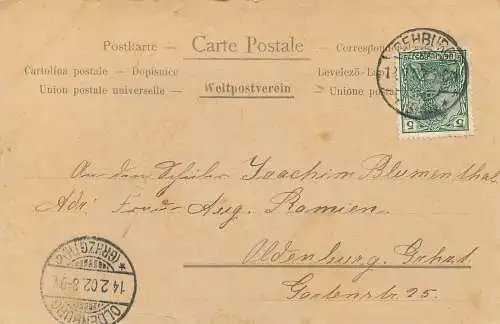 Postkarte — Carte Postale — Correspon
Cartolina postale — Dopisnice Levelező-Lap
Union postale universelle — Weltpostverein — Unione postal
REHBURG
5 5
An den Schüler Joachim Blumenthal
Adr. Frau Aug. Ramien.
Oldenburg. Grhzt.
Gartenstr. 25.
OLDENBURG
(GRHZGT.)
14.2.02. 8-9V.